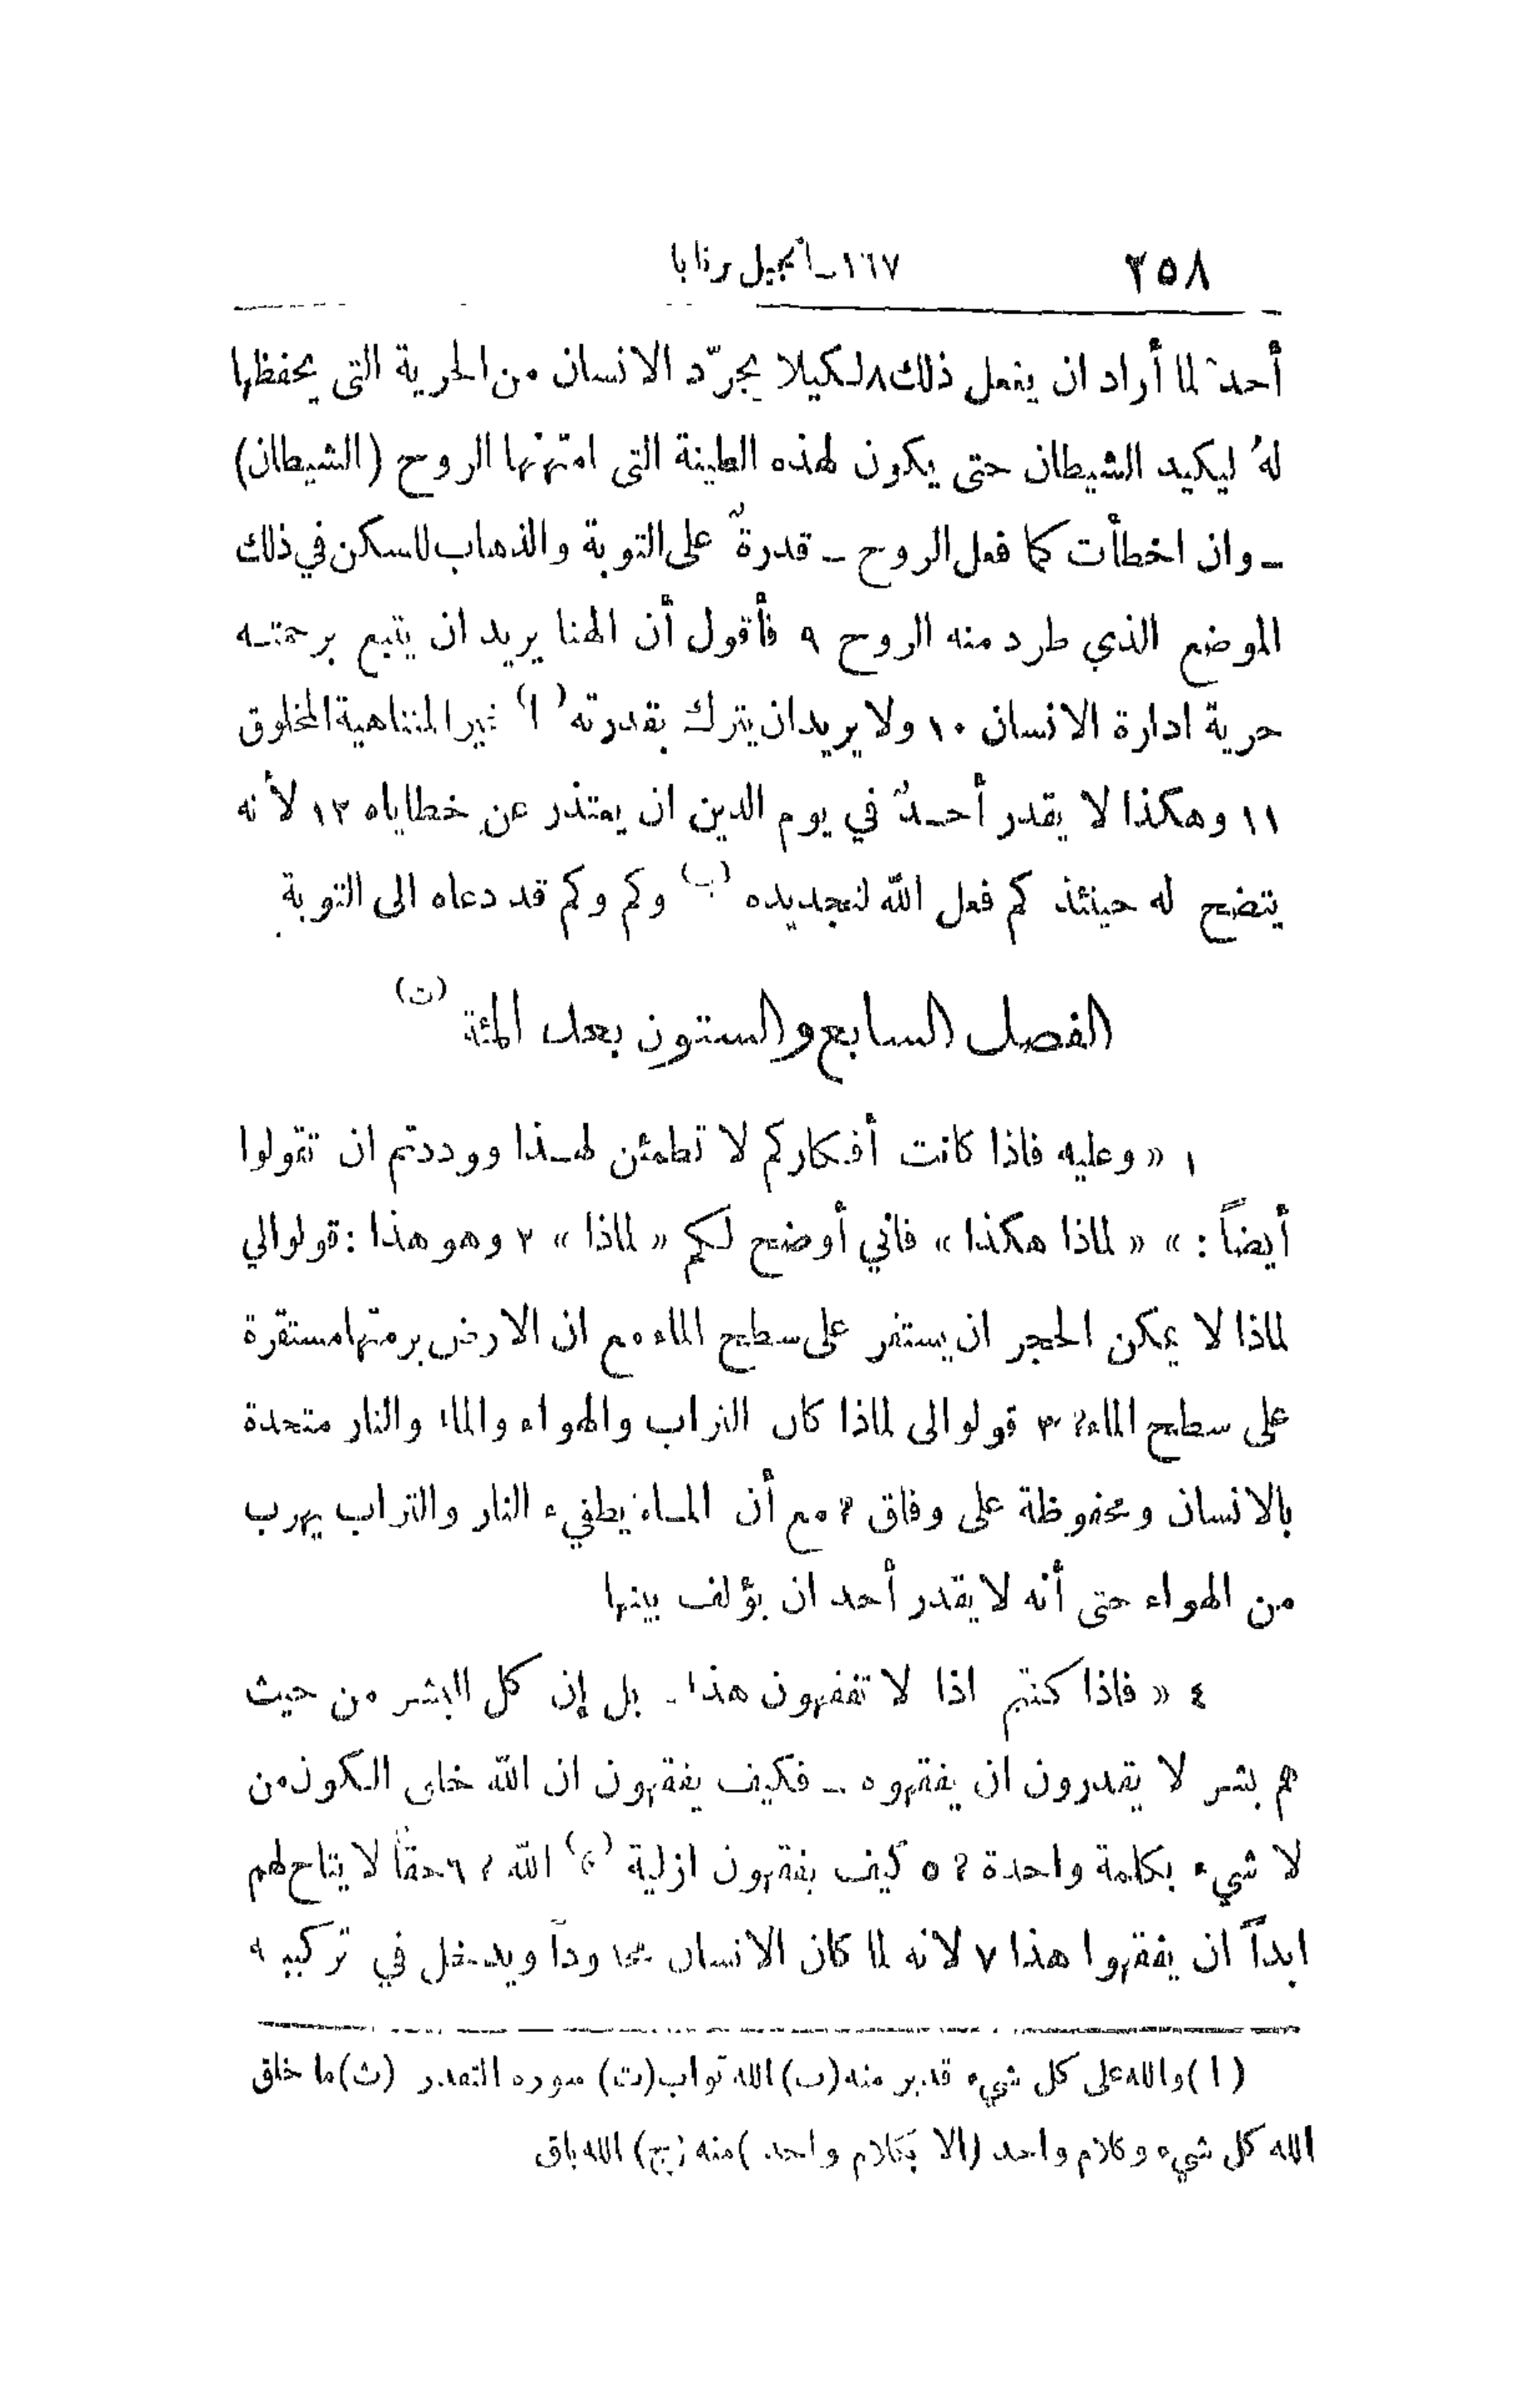 ٢٥٨ ١٦٧ـ انجيل برنابا
أحدٌ لما أراد ان يفعل ذلك ٨ لكيلا يجرّد الانسان من الحرية التى يحفظها
لهُ ليكيد الشيطان حتى يكون لهذه الطينة التى امتهنها الروح (الشيطان)
ـ وان اخطأت كما فعل الروح ـ قدرةٌ على التوبة والذهاب للسكن في ذلك
الموضع الذي طرد منه الروح ٩ فأقول أن الهنا يريد ان يتبع برحمتـه
حرية ادارة الانسان ١٠ ولا يريد ان يترك بقدرته (ا) غير المتناهية المخلوق
١١ وهكذا لا يقدر أحـدٌ في يوم الدين ان يعتذر عن خطاياه ١٢ لأنه
يتضح له حينئذ كم فعل الله لتجديده (ب) وكم وكم قد دعاه الى التوبة
الفصل السابع والستون بعد المئة (ت)
١ « وعليه فاذا كانت أفكاركم لا تطمئن لهـذا ووددتم ان تقولوا
أيضاً : » « لماذا هكذا » فاني أوضح لكم « لماذا » ٢ وهو هذا : قولوا لي
لماذا لا يمكن الحجر ان يستقر على سطح الماء مع ان الارض برمتها مستقرة
على سطح الماء؟ ٣ قولوا لى لماذا كان التراب والهواء والماء والنار متحدة
بالانسان ومحفوظة على وفاق ؟ مع أن المـاء يطفيء النار والتراب يهرب
من الهواء حتى أنه لا يقدر أحد ان يؤلف بينها
٤ « فاذا كنتم اذا لا تفقهون هذا ـ بل إن كل البشر من حيث
هم بشر لا يقدرون ان يفقهوه ـ فكيف يفقهون ان الله خلق الكون من
لا شيء بكلمة واحدة ؟ ٥ كيف يفقهون ازلية (ج) الله ؟ ٦ حقاً لا يتاح لهم
ابداً ان يفقهوا هذا ٧ لانه لما كان الانسان محدوداً ويدخل في تركيبه
(ا) والله على كل شيء قدير منه (ب) الله تواب (ت) سوره التقدير (ث) ما خلق
الله كل شيء وكلام واحد (الا بكلام واحد) منه (ج) الله باق